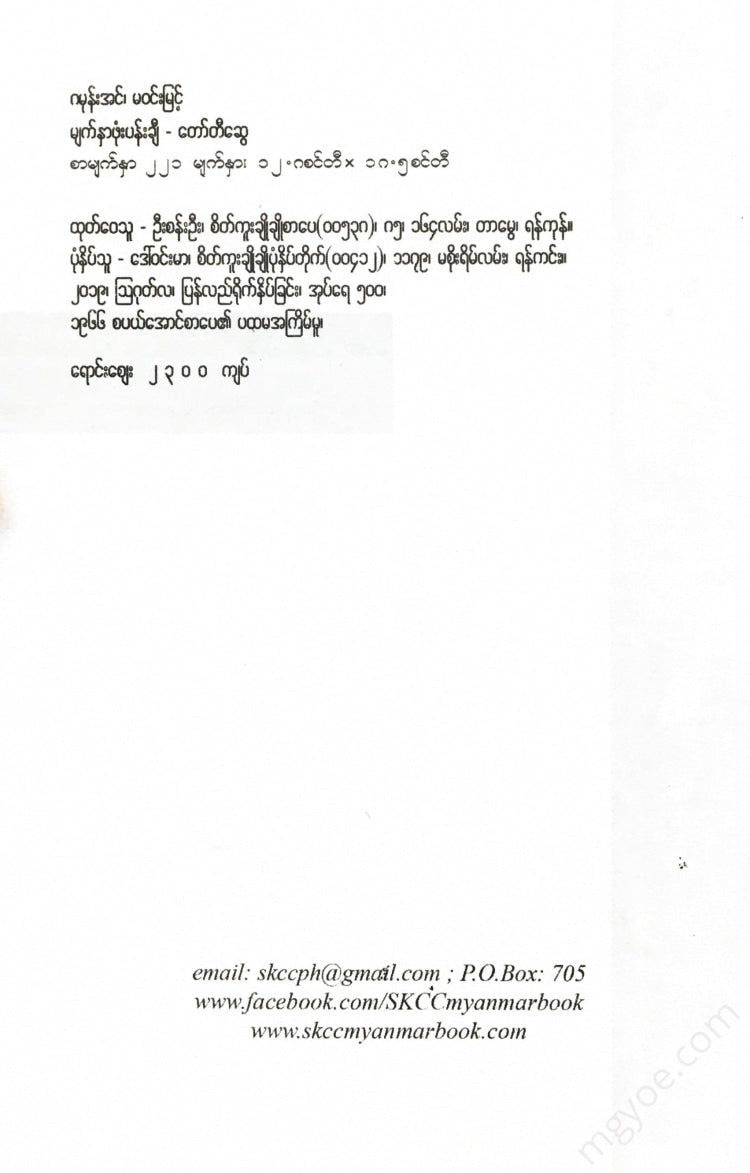 ဂမုန်းအင်၊ မဝင်းမြင့်
မျက်နှာဖုံးပန်းချီ - တော်တီဆွေ
စာမျက်နှာ ၂၂၁ မျက်နှာ၊ ၁၂.၈စင်တီ× ၁၈.၅စင်တီ
ထုတ်ဝေသူ - ဦးစန်းဦး၊ စိတ်ကူးချိုချိုစာပေ(၀၀၅၃၈)၊ ၈၅၊ ၁၆၄လမ်း၊ တာမွေ၊ ရန်ကုန်။
ပုံနှိပ်သူ - ဒေါ်ဝင်းမာ၊ စိတ်ကူးချိုချိုပုံနှိပ်တိုက်(၀၀၄၁၂)၊ ၁၁၇၉၊ မစိုးရိမ်လမ်း၊ ရန်ကင်း။
၂၀၁၉၊ ဩဂုတ်လ၊ ပြန်လည်ရိုက်နှိပ်ခြင်း၊ အုပ်ရေ ၅၀၀၊
၁၉၆၆ စပယ်အောင်စာပေ၏ ပထမအကြိမ်မူ၊
ရောင်းဈေး ၂၃၀၀ ကျပ်
email: skccph@gmail.com ; P.O.Box: 705
www.facebook.com/SKCCmyanmarbook
www.skccmyanmarbook.com
mgyoe.com